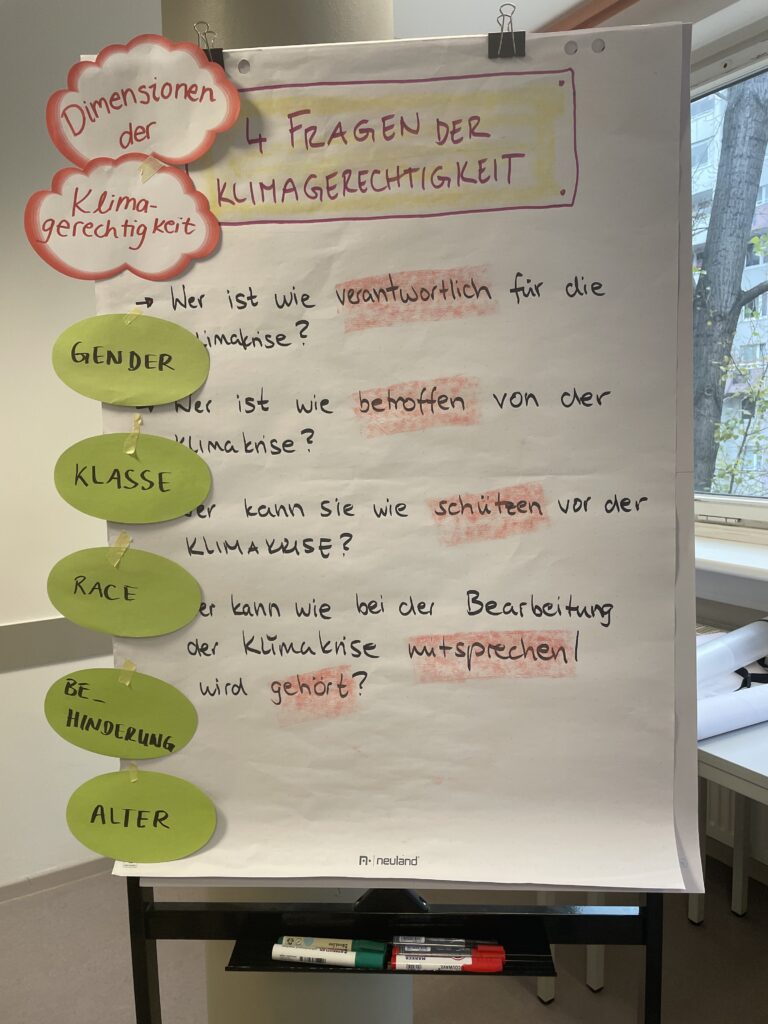 Dimensionen
der
Klima-
gerechtigkeit
4 FRAGEN DER
KLIMAGERECHTIGKEIT
→ Wer ist wie verantwortlich für die
limakrise?
Wer ist wie betroffen von der
klimakrise?
er kann sie wie schützen vor der
KLIMAKRISE?
er kann wie bei der Bearbeitung
der Klimakrise mitsprechen/
wird gehört?
GENDER
KLASSE
RACE
BE_
HINDERUNG
ALTER
neuland